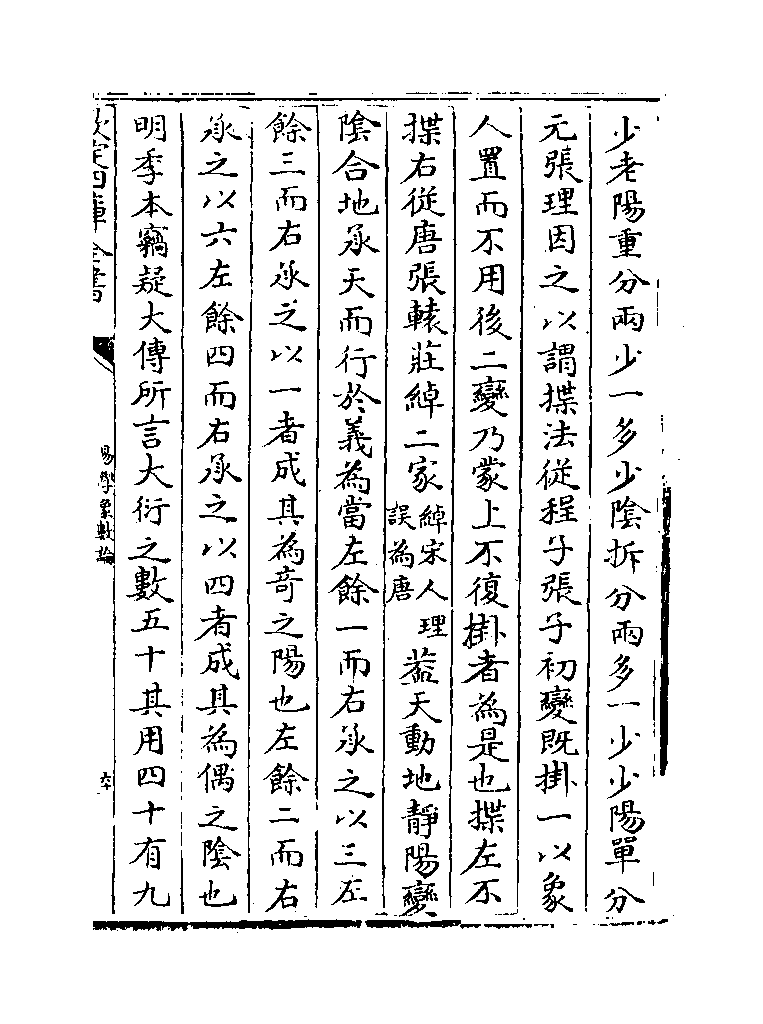 少老陽重分兩少一多少陰拆分兩多一少少陽單分
元張理因之以謂揲法從程子張子初變既掛一以象
人置而不用後二變乃蒙上不復掛者為是也揲左不
揲右從唐張轅莊綽二家綽宋人理誤為唐葢天動地靜陽變
陰合地承天而行於義為當左餘一而右承之以三左
餘三而右承之以一者成其為竒之陽也左餘二而右
承之以六左餘四而右承之以四者成其為偶之陰也
明季本竊疑大傳所言大衍之數五十其用四十有九
欽定四庫全書
易學象數論